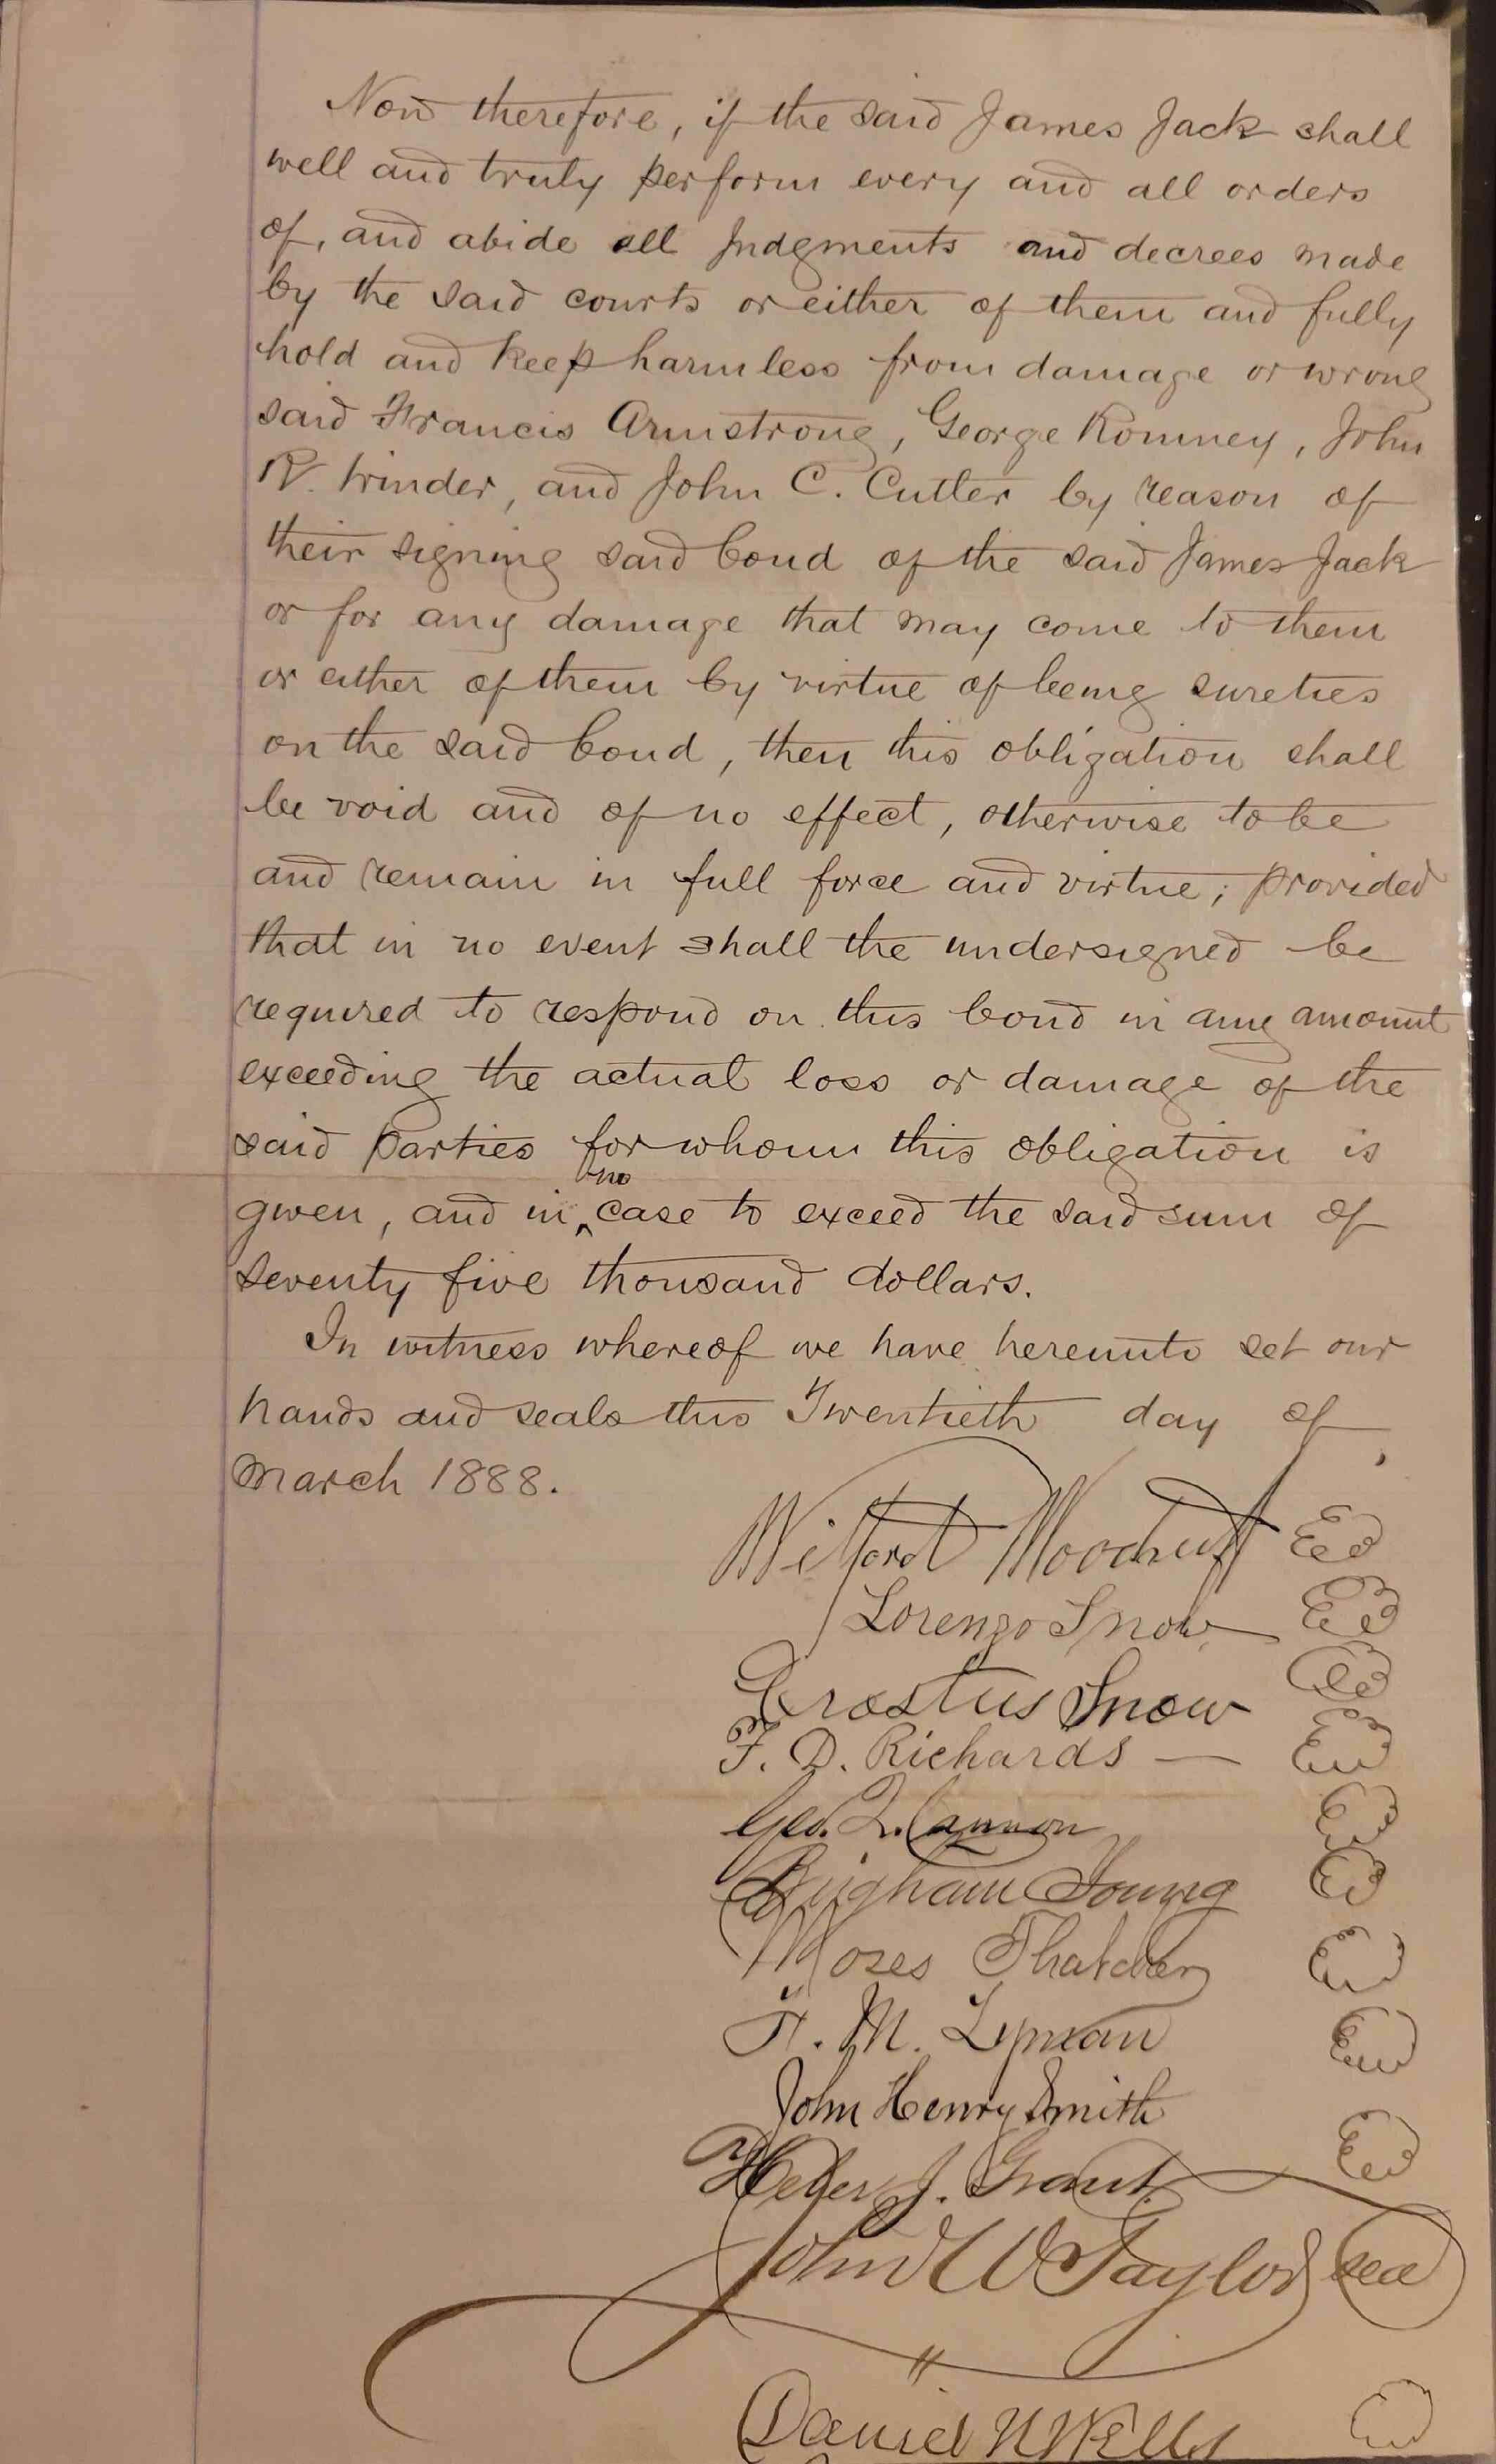 Now therefore, if the said James Jack shall
well and truly perform every and all orders
of, and abide all Judgments and decrees made
by the said courts or either of them and fully
hold and keep harmless from damage or wrong
said Francis Armstrong, George Romney, John
R. Winder, and John C. Cutler by reason of
their signing said bond of the said James Jack
or for any damage that may come to them
or either of them by virtue of being sureties
on the said bond, then this obligation shall
be void and of no effect, otherwise to be
and remain in full force and virtue; provided
that in no event shall the undersigned be
required to respond on this bond in any amount
exceeding the actual loss or damage of the
said parties for whom this obligation is
given, and in no case to exceed the said sum of
seventy five thousand dollars.
In witness whereof we have hereunto set our
hands and seals this Twentieth day of
March 1888.
Wilford Woodruff
Lorenzo Snow
Erastus Snow
F. D. Richards —
Geo. Q. Cannon
Brigham Young
Moses Thatcher
F. M. Lyman
John Henry Smith
Heber J. Grant
John W Taylor seal
Daniel H Wells